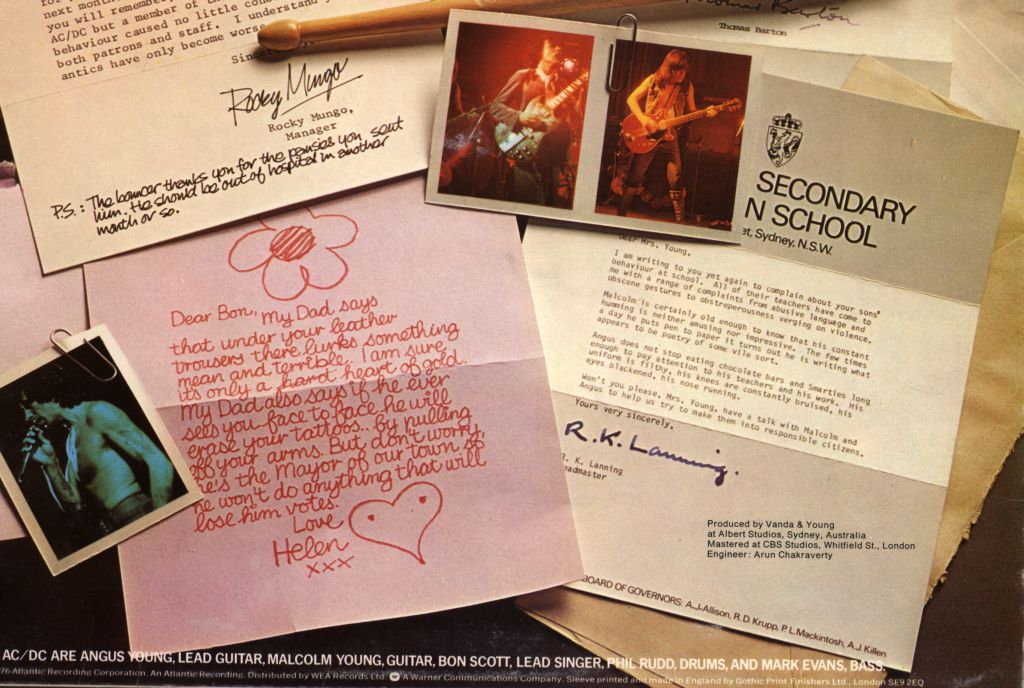 next month
you will remember
AC/DC but a member of
behaviour caused no little
both patrons and staff. I understand
antics have only become worse
Rocky Mungo
Rocky Mungo,
Manager
P.S.: The bouncer thanks you for the pansies you sent
him. He should be out of hospital in another
month or so.
Thomas Barton
Thomas Barton
SECONDARY
N SCHOOL
et, Sydney, N.S.W.
Dear Mrs. Young,
I am writing to you yet again to complain about your sons'
behaviour at school. All of their teachers have come to
me with a range of complaints from abusive language and
obscene gestures to obstreperousness verging on violence.
Malcolm is certainly old enough to know that his constant
humming is neither amusing nor impressive. The few times
a day he puts pen to paper it turns out he is writing what
appears to be poetry of some vile sort.
Angus does not stop eating chocolate bars and Smarties long
enough to pay attention to his teachers and his work. His
uniform is filthy, his knees are constantly bruised, his
eyes blackened, his nose running.
Won't you please, Mrs. Young, have a talk with Malcolm and
Angus to help us try to make them into responsible citizens.
Yours very sincerely,
R.K. Lanning.
R. K. Lanning
eadmaster
Produced by Vanda & Young
at Albert Studios, Sydney, Australia
Mastered at CBS Studios, Whitfield St., London
Engineer: Arun Chakraverty
BOARD OF GOVERNORS: A.J. Allison, R.D. Krupp, P.L. Mackintosh, A.J. Killen
Dear Bon, My Dad says
that under your leather
trousers there lurks something
mean and terrible. I am sure
it's only a hard heart of gold.
My Dad also says if he ever
sees you face to face he will
erase your tattoos.. by pulling
off your arms. But don't worry,
he's the Mayor of our town &
he won't do anything that will
lose him votes.
Love
Helen
xxx
AC/DC ARE ANGUS YOUNG, LEAD GUITAR, MALCOLM YOUNG, GUITAR, BON SCOTT, LEAD SINGER, PHIL RUDD, DRUMS, AND MARK EVANS, BASS.
76 Atlantic Recording Corporation. An Atlantic Recording. Distributed by WEA Records Ltd. A Warner Communications Company. Sleeve printed and made in England by Gothic Print Finishers Ltd., London SE9 2EQ